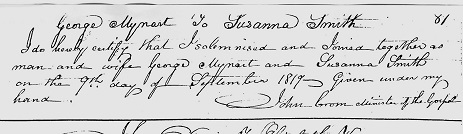 George Mynart To Susanna Smith 61
I do hereby certify that I solemnised and Joined together as
man and wife George Mynart and Susanna Smith
on the 9th day of September 1819 Given under my
hand. John Crom Minister of the Gospel